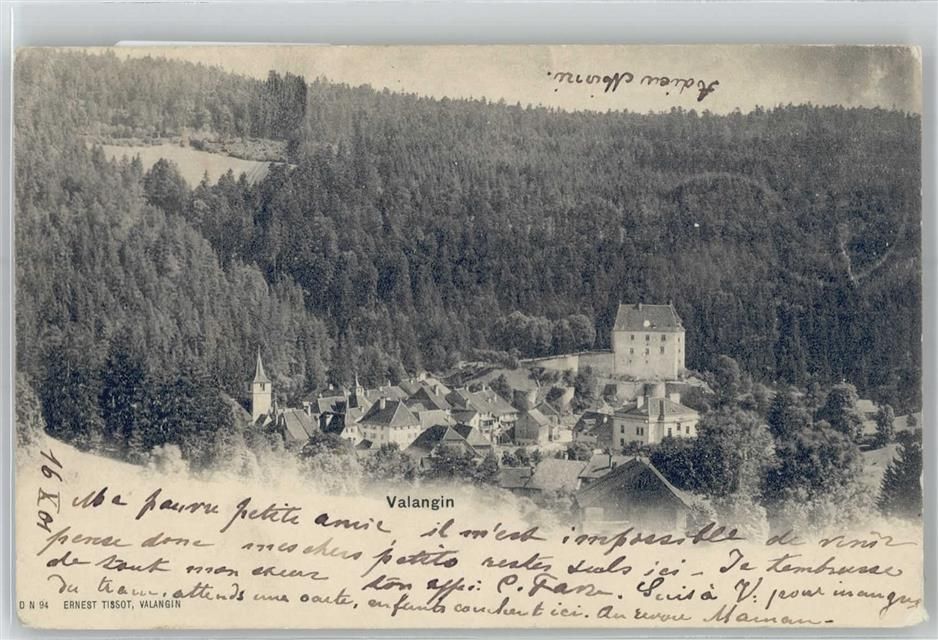 Adieu Mimi.
16 X 01
Valangin
Ma pauvre petite amie, il m'est impossible de venir
pense donc mes chers petits restes seuls ici - Je t'embrasse
de tout mon cœur ton aff: C. Favre. Suis à V. pour
du train, attends une carte, enfants couchent ici. Au revoir Maman -
D N 94 ERNEST TISSOT, VALANGIN